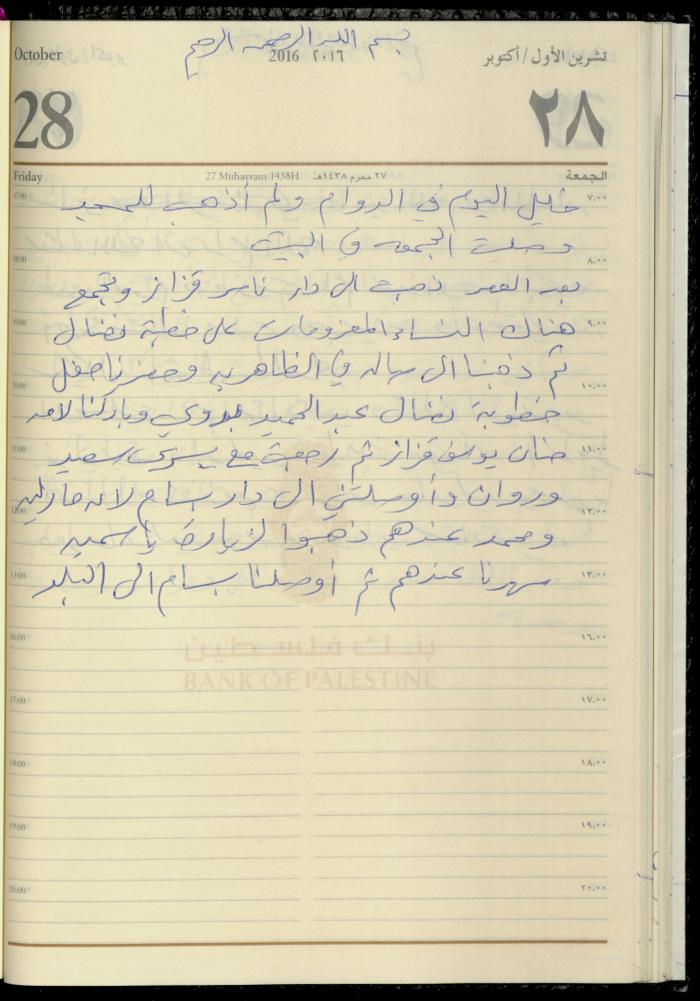 بسم الله الرحمن الرحيم
October 2016 ٢٠١٦ تشرين الأول / أكتوبر
28 ٢٨
Friday 27 Muharram 1438H ٢٧ محرم ١٤٣٨هـ الجمعة
07:00 خليل اليوم في الدوام ولم أذهب للمسجد ٧,٠٠
وصليت الجمعه في البيت
08:00 ٨,٠٠
بعد العصر ذهبت الى دار ناصر قزاز وتجمع
09:00 هناك النساء المعزومات على خطبة نضال ٩,٠٠
ثم ذهبنا الى صاله في الظاهريه وحضرنا حفل
10:00 ١٠,٠٠
خطوبة نضال عبد الحميد بدوي وباركنا لامه
11:00 حنان يوسف قزاز ثم رجعت مع يسرى سعيد ١١,٠٠
وروان وأوصلتني الى دار بسام لانه
12:00 ١٢,٠٠
ومحمد عندهم ذهبوا لزيارة ياسمين
13:00 سهرنا عندهم ثم أوصلنا بسام الى البلد ١٣,٠٠
16:00 ١٦,٠٠
بنك فلسطين
BANK OF PALESTINE
17:00 ١٧,٠٠
18:00 ١٨,٠٠
19:00 ١٩,٠٠
20:00 ٢٠,٠٠